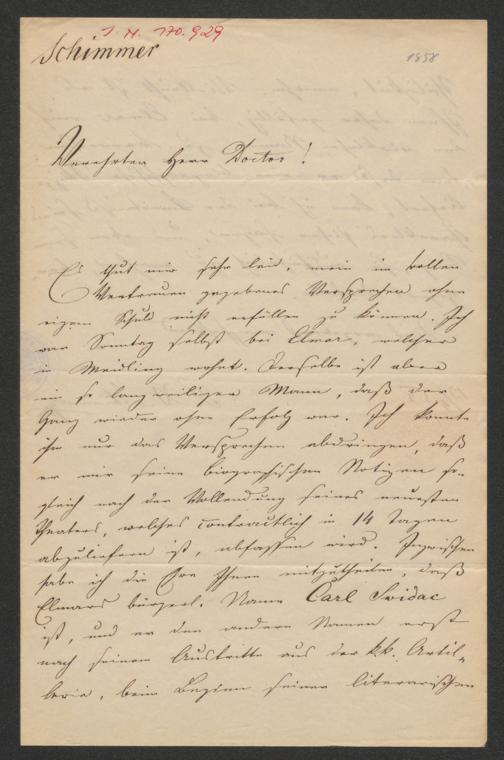 J. N. 170.929
Schimmer
1858
Verehrter Herr Doctor!
Es thut mir sehr leid, mein im vollen
Vertrauen gegebenes Versprechen ohne
eigene Schuld nicht erfüllen zu können. Ich
war Sonntag selbst bei Elmar, welcher
in Meidling wohnt. Derselbe ist aber
ein so langweiliger Mann, daß der
Gang wieder ohne Erfolg war. Ich konnte
ihm nur das Versprechen abdringen, daß
er mir seine biographischen Notizen so-
gleich nach der Vollendung seines neuesten
Theaters, welches contractlich in 14 Tagen
abzuliefern ist, abfassen wird. Inzwischen
habe ich die Ehre Ihnen mitzutheilen, daß
Elmars bürgerl. Name Carl Swidac
ist, und er den andern Namen erst
nach seinem Austritte aus der kk. Artil-
lerie, beim Beginn seiner literarischen